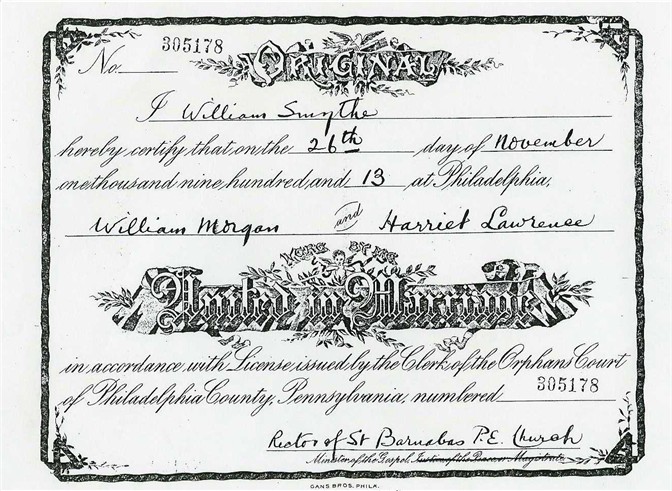 No. 305178
ORIGINAL
I William Smythe
hereby certify that on the 26th day of November
one thousand nine hundred and 13 at Philadelphia,
William Morgan and Harriet Lawrence
WERE BY ME
United in Marriage
in accordance with License issued by the Clerk of the Orphans Court
of Philadelphia County, Pennsylvania, numbered 305178
Rector of St Barnabas P.E. Church
Minister of the Gospel, Justice of the Peace or Magistrate
GANS BROS. PHILA.